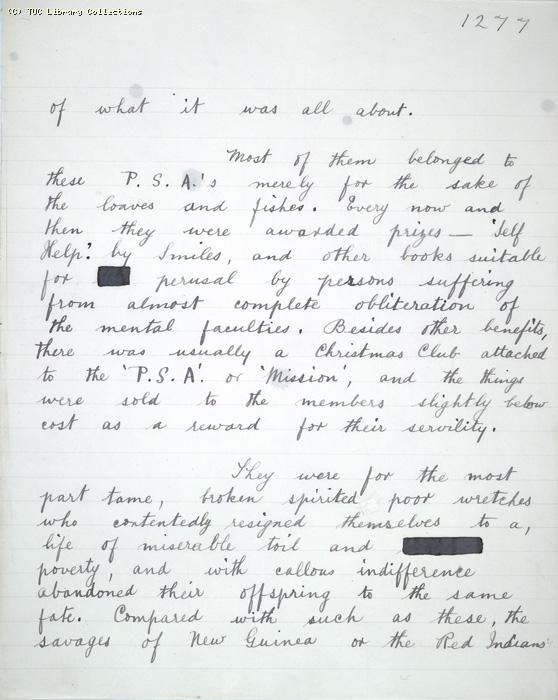 (C) TUC Library Collections
1277
of what it was all about.
Most of them belonged to
these P. S. A.'s merely for the sake of
the loaves and fishes. Every now and
then they were awarded prizes — 'Self
Help.' by Smiles, and other books suitable
for perusal by persons suffering
from almost complete obliteration of
the mental faculties. Besides other benefits,
there was usually a Christmas Club attached
to the 'P. S. A'. or 'Mission', and the things
were sold to the members slightly below
cost as a reward for their servility.
They were for the most
part tame, broken spirited poor wretches
who contentedly resigned themselves to a,
life of miserable toil and
poverty, and with callous indifference
abandoned their offspring to the same
fate. Compared with such as these, the
savages of New Guinea or the Red Indians